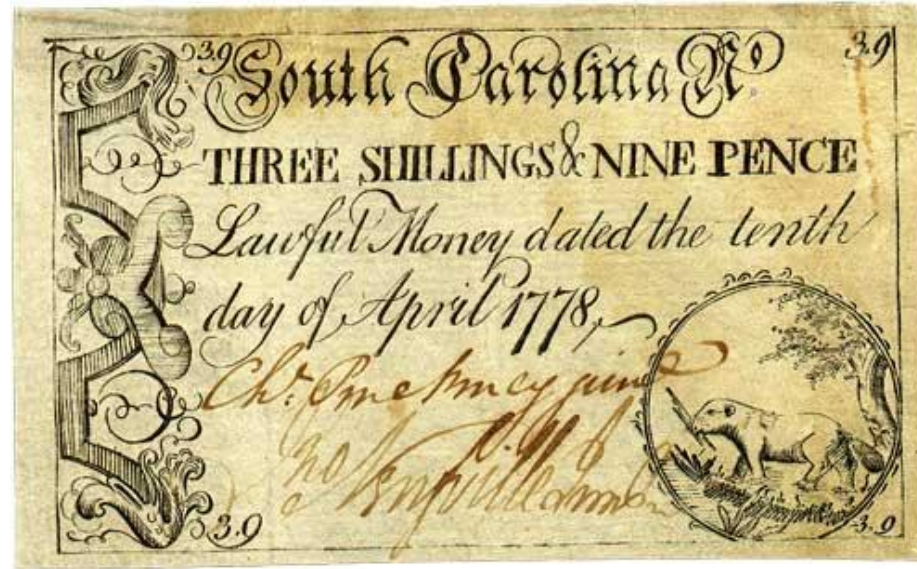 3.9 South Carolina No. 3.9
THREE SHILLINGS & NINE PENCE
Lawful Money dated the tenth
day of April 1778,
Chs. Pinckney junr
3.9 3.9